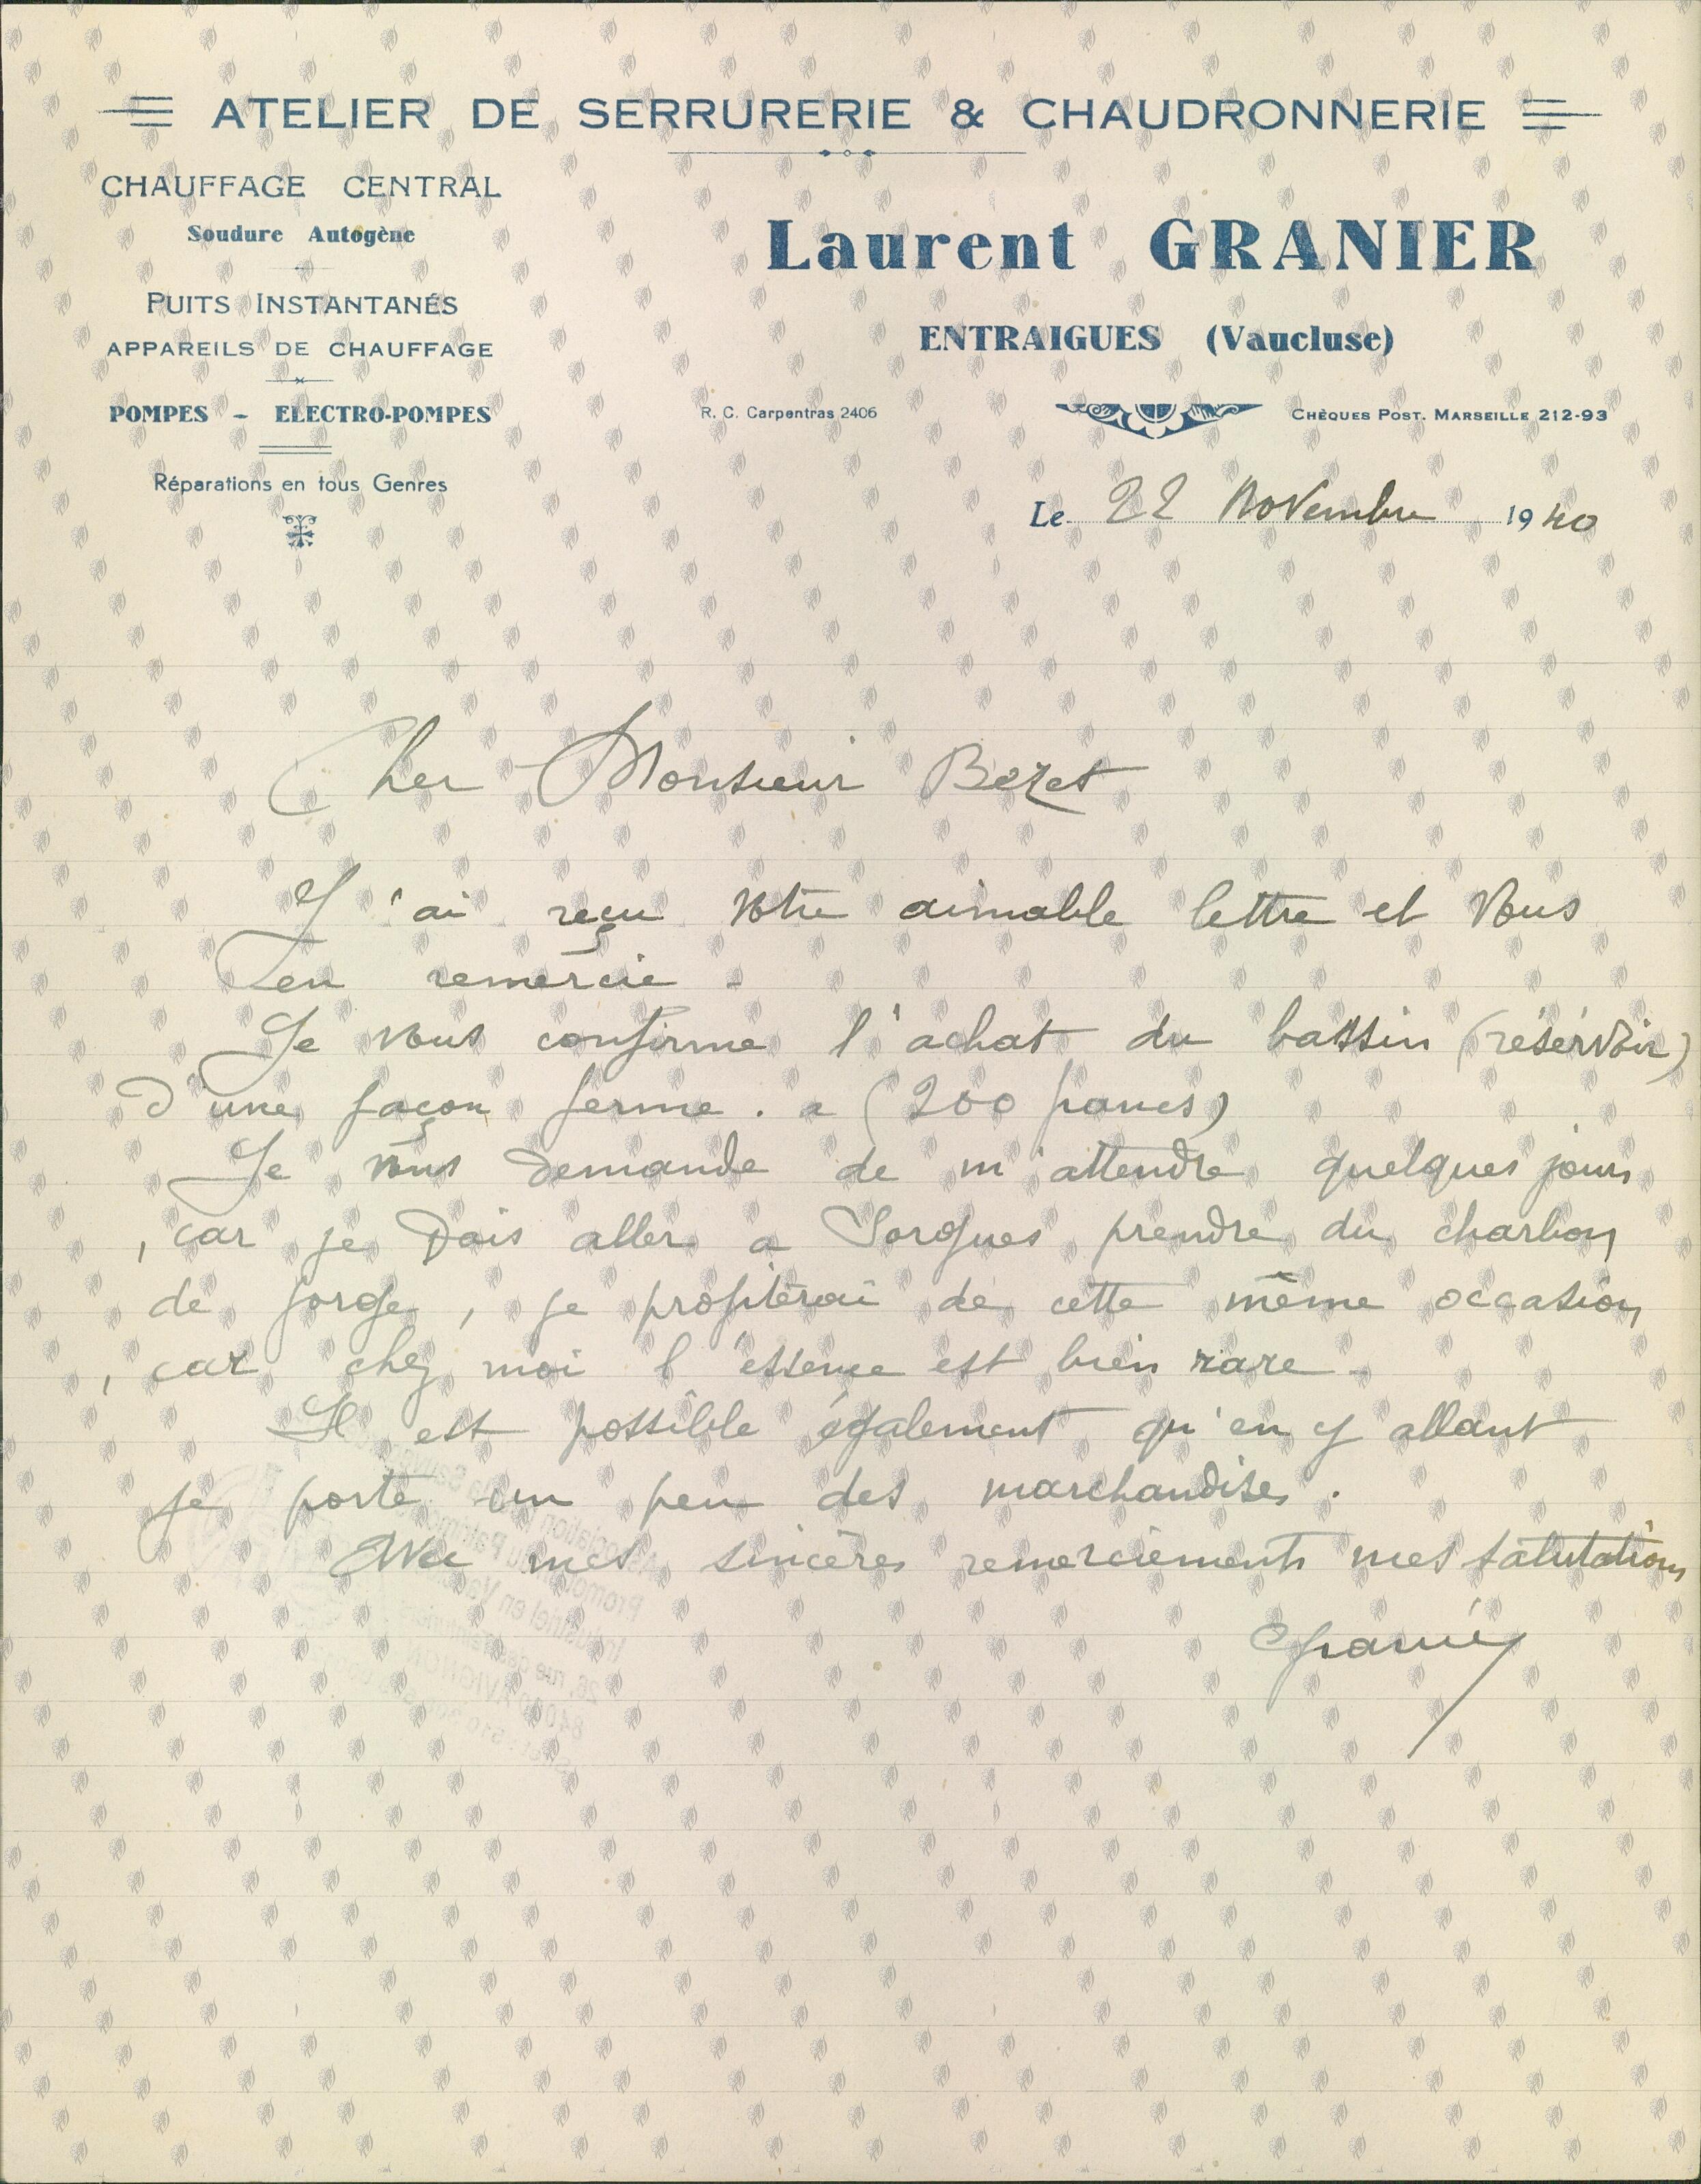 ATELIER DE SERRURERIE & CHAUDRONNERIE
CHAUFFAGE CENTRAL
Soudure Autogène
PUITS INSTANTANÉS
APPAREILS DE CHAUFFAGE
POMPES - ELECTRO-POMPES
Réparations en tous Genres
Laurent GRANIER
ENTRAIGUES (Vaucluse)
R. C. Carpentras 2406
CHÈQUES POST. MARSEILLE 212-93
Le 22 Novembre 1940
Cher Monsieur Bezet
J'ai reçu votre aimable lettre et vous
en remercie -
Je vous confirme l'achat du bassin (réservoir)
d'une façon ferme. a (200 francs)
Je vous demande de m'attendre quelques jours
, car je dois aller a Sorgues prendre du charbon
de forge, je profiterai de cette même occasion
, car chez moi l'essence est bien rare -
Il est possible également qu'en y allant
je porte un peu des marchandises.
Avec mes sincères remerciements mes salutations
Granier
Association
Promotion du Patrimoine
Industriel en
26, rue des
AVIGNON